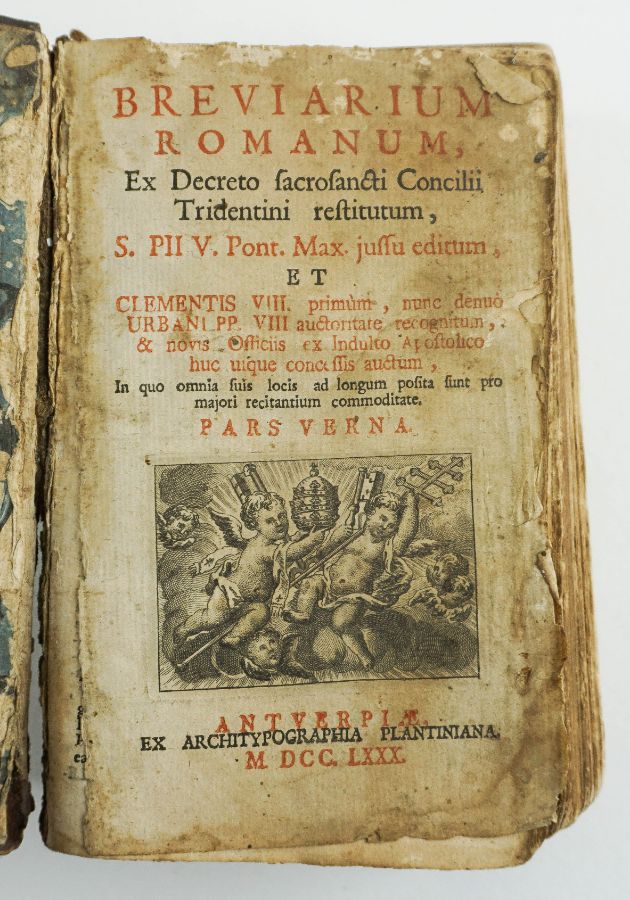 BREVIARIUM
ROMANUM,
Ex Decreto ſacroſancti Concilii
Tridentini reſtitutum,
S. PII V. Pont. Max. juſſu editum,
ET
CLEMENTIS VIII. primùm, nunc denuò
URBANI PP. VIII auctoritate recognitum,
& novis Officiis ex Indulto Apoſtolico
huc uſque conceſſis auctum,
In quo omnia ſuis locis ad longum poſita ſunt pro
majori recitantium commoditate.
PARS VERNA
ANTVERPIÆ,
EX ARCHITYPOGRAPHIA PLANTINIANA.
M. DCC. LXXX.